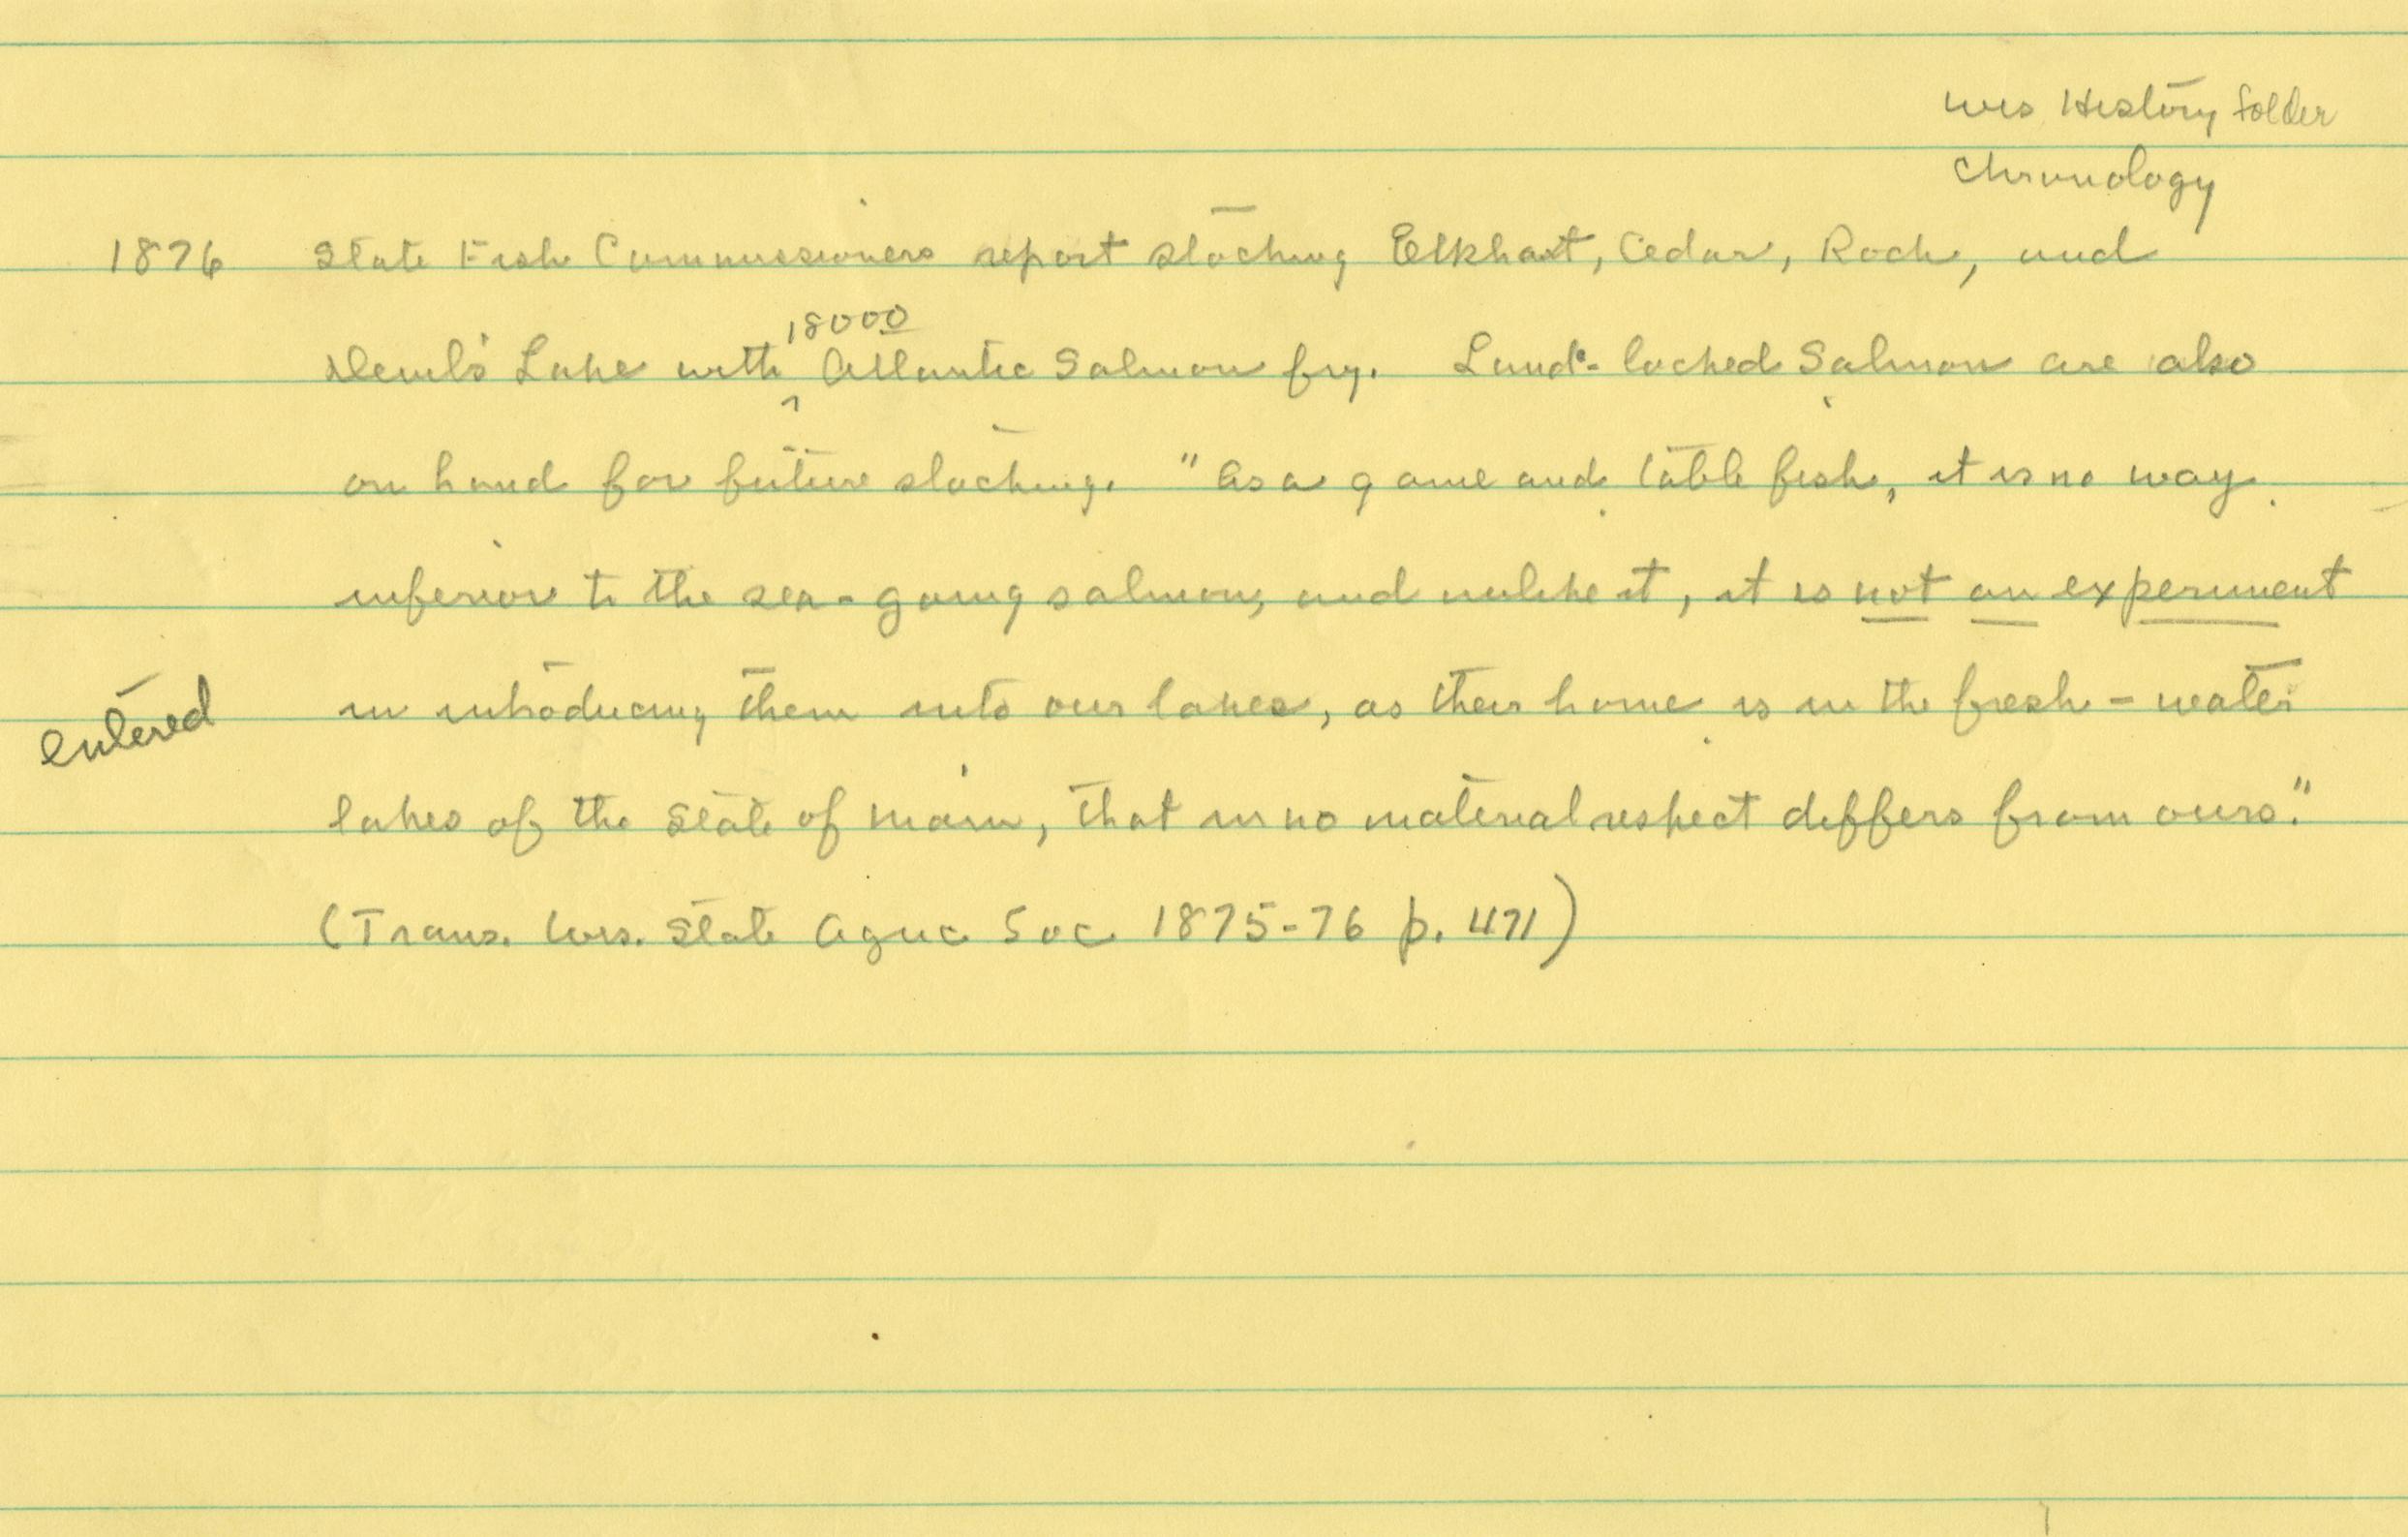 Wis History folder
Chronology
1876 State Fish Commissioners report stocking Elkhart, Cedar, Rock, and
18000
Devil's Lake with ^ Atlantic Salmon fry. Land-locked Salmon are also
on hand for future stocking. "As a game and table fish, it is no way
inferior to the sea-going salmon, and unlike it, it is not an experiment
in introducing them into our lakes, as their home is in the fresh-water
entered
lakes of the State of Main, that in no material respect differs from ours."
(Trans. Wis. State Agric Soc 1875-76 p. 471)